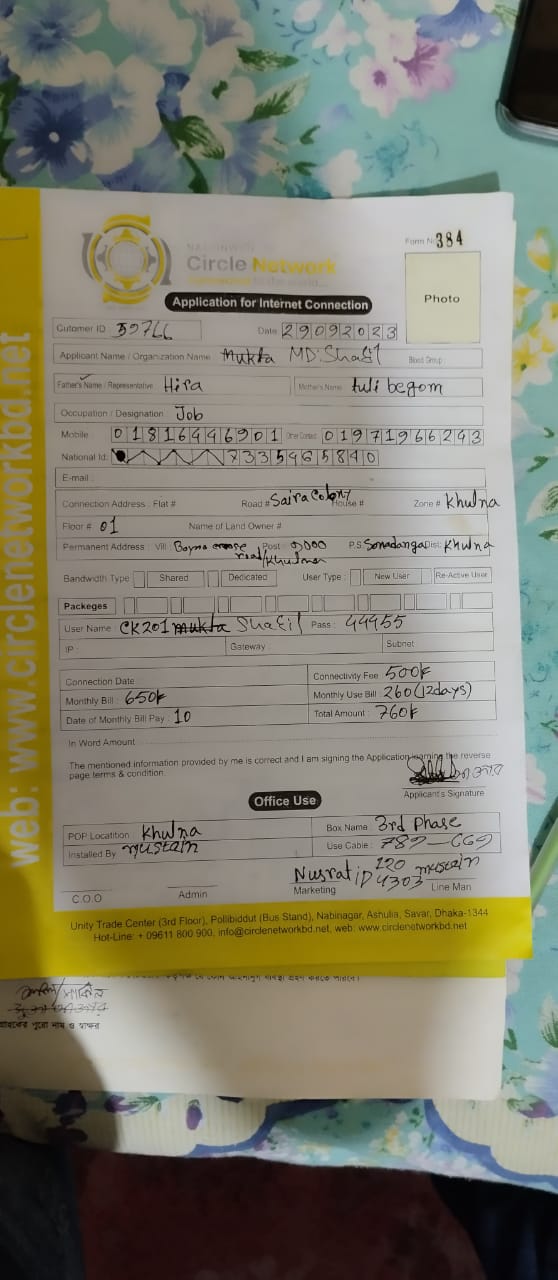 web: www.circlenetworkbd.net
Form No 384
Circle Network
Photo
Application for Internet Connection
Cutomer ID Date 29092023
Applicant Name / Organization Name Mukta MD: Shafil Blood Group :
Father's Name / Representative Hira Mother's Name tuli begom
Occupation / Designation Job
Mobile 01816446901 Other Contact 01971966293
National Id: 7335965840
E-mail :
Connection Address : Flat # Road # Saira Colony House # Zone # Khulna
Floor # 01 Name of Land Owner #
Permanent Address : Vill Post : 9000 P.S. Sonadanga Dist: Khulna
road/Khulna
Bandwidth Type Shared Dedicated User Type : New User Re-Active User
Packeges
User Name : CK201 Shafil Pass : 44455
IP : Gateway : Subnet
Connection Date : Connectivity Fee 500৳
Monthly Bill : 650৳ Monthly Use Bill 260(12days)
Date of Monthly Bill Pay : 10 Total Amount : 760৳
In Word Amount
The mentioned information provided by me is correct and I am signing the Application the reverse
page terms & condition.
Applicant's Signature
Office Use
POP Locatition Khulna Box Name : 3rd Phase
Installed By mustain Use Cable : 789-669
Nusrat ID 4303 120 mustain
C.O.O Admin Marketing Line Man
Unity Trade Center (3rd Floor), Pollibiddut (Bus Stand), Nabinagar, Ashulia, Savar, Dhaka-1344
Hot-Line: + 09611 800 900, info@circlenetworkbd.net, web: www.circlenetworkbd.net
গ্রাহকের পুরো নাম ও স্বাক্ষর